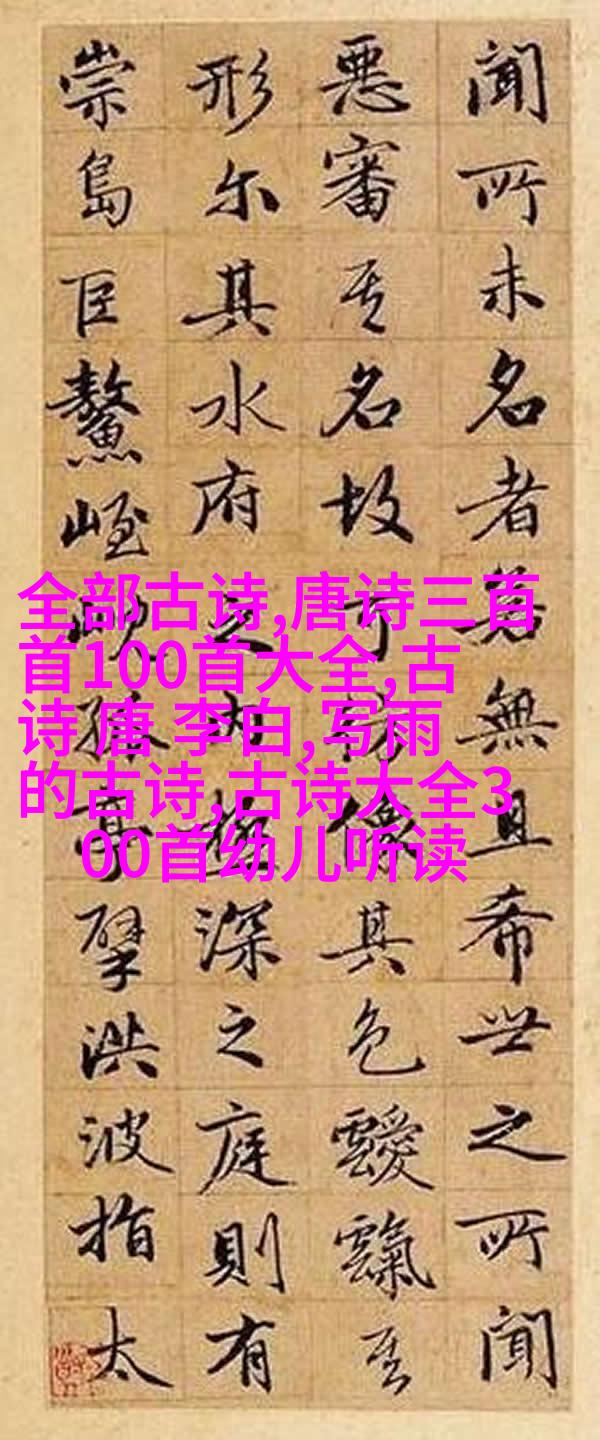 聞所未名者若無且希世之所聞
惡審其名故可仿像其色靉霼其
形尔其水府之内極深之庭則有
崇島巨鰲峌孤亭擘洪波指太
全部古诗,唐诗三百
首100首大全,古
诗 唐 李白,写雨
的古诗,古诗大全3
00首幼儿听读